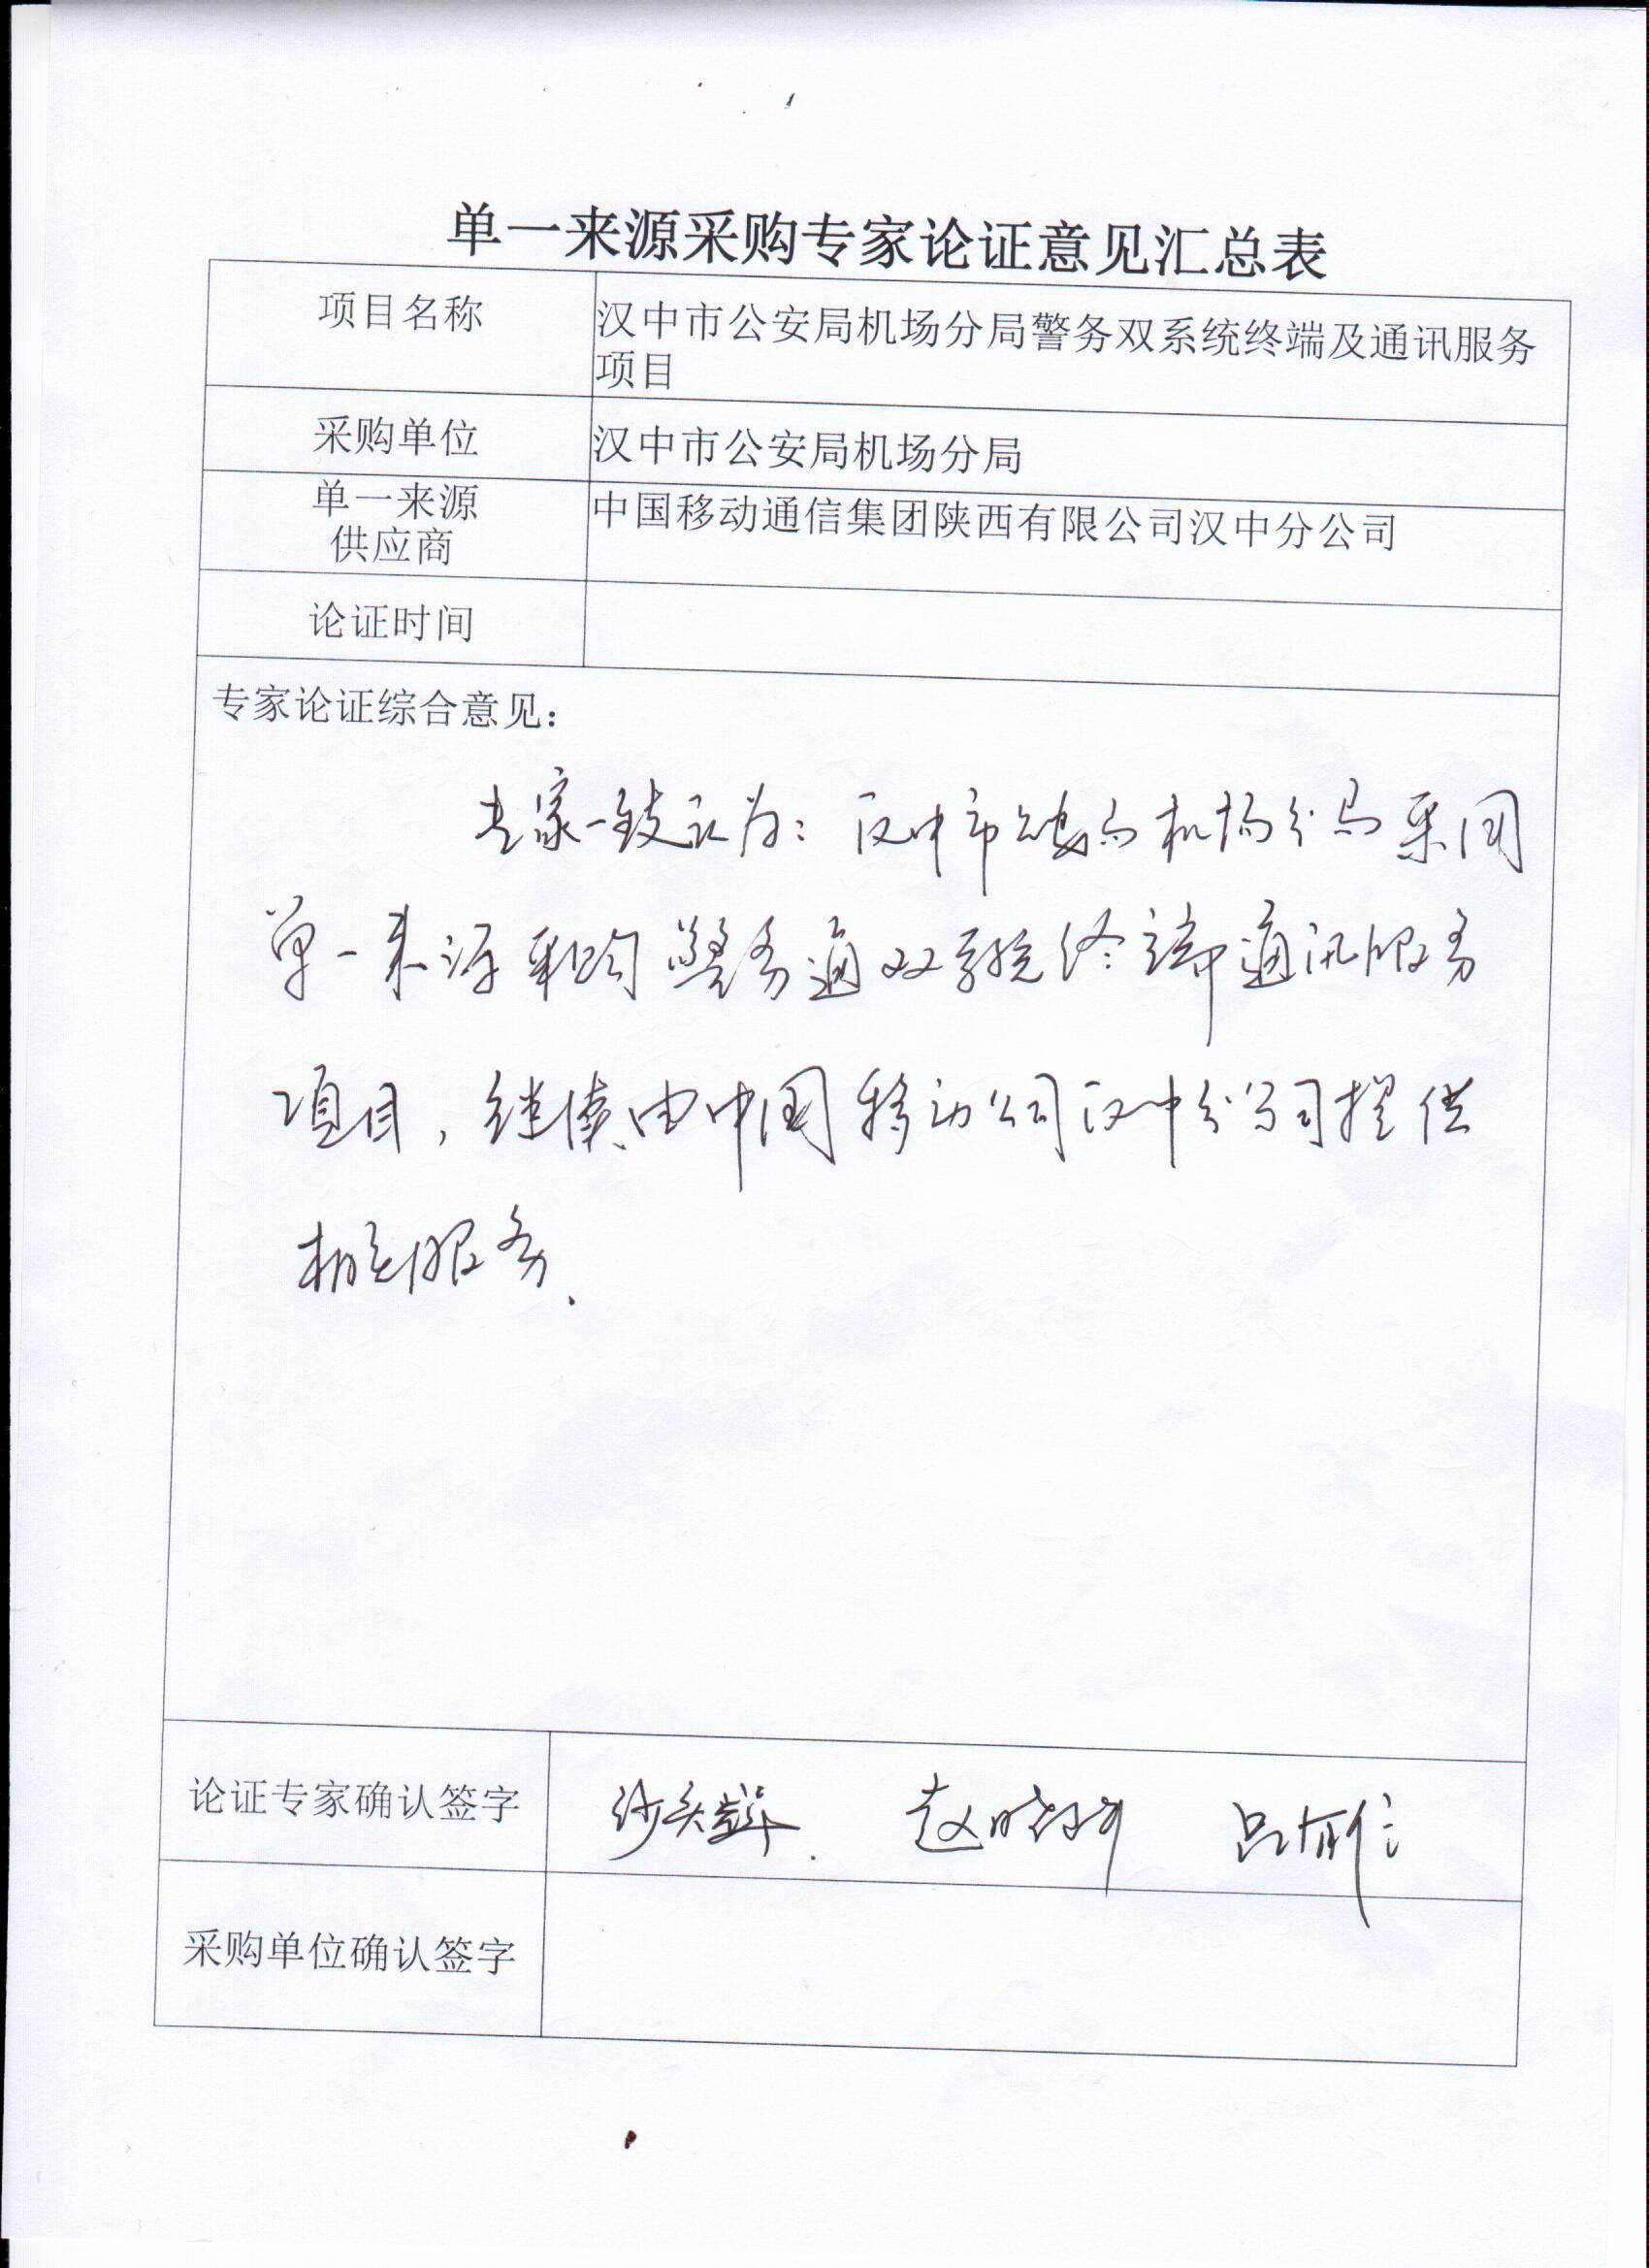 单一来源采购专家论证意见汇总表
项目名称
汉中市公安局机场分局警务双系统终端及通讯服务
项目
采购单位
汉中市公安局机场分局
单一来源
供应商
中国移动通信集团陕西有限公司汉中分公司
论证时间
专家论证综合意见：
专家一致认为：汉中市公安局机场分局采用
单一来源采购警务通双系统终端通讯服务
项目，继续由中国移动公司汉中分公司提供
相关服务.
论证专家确认签字
采购单位确认签字